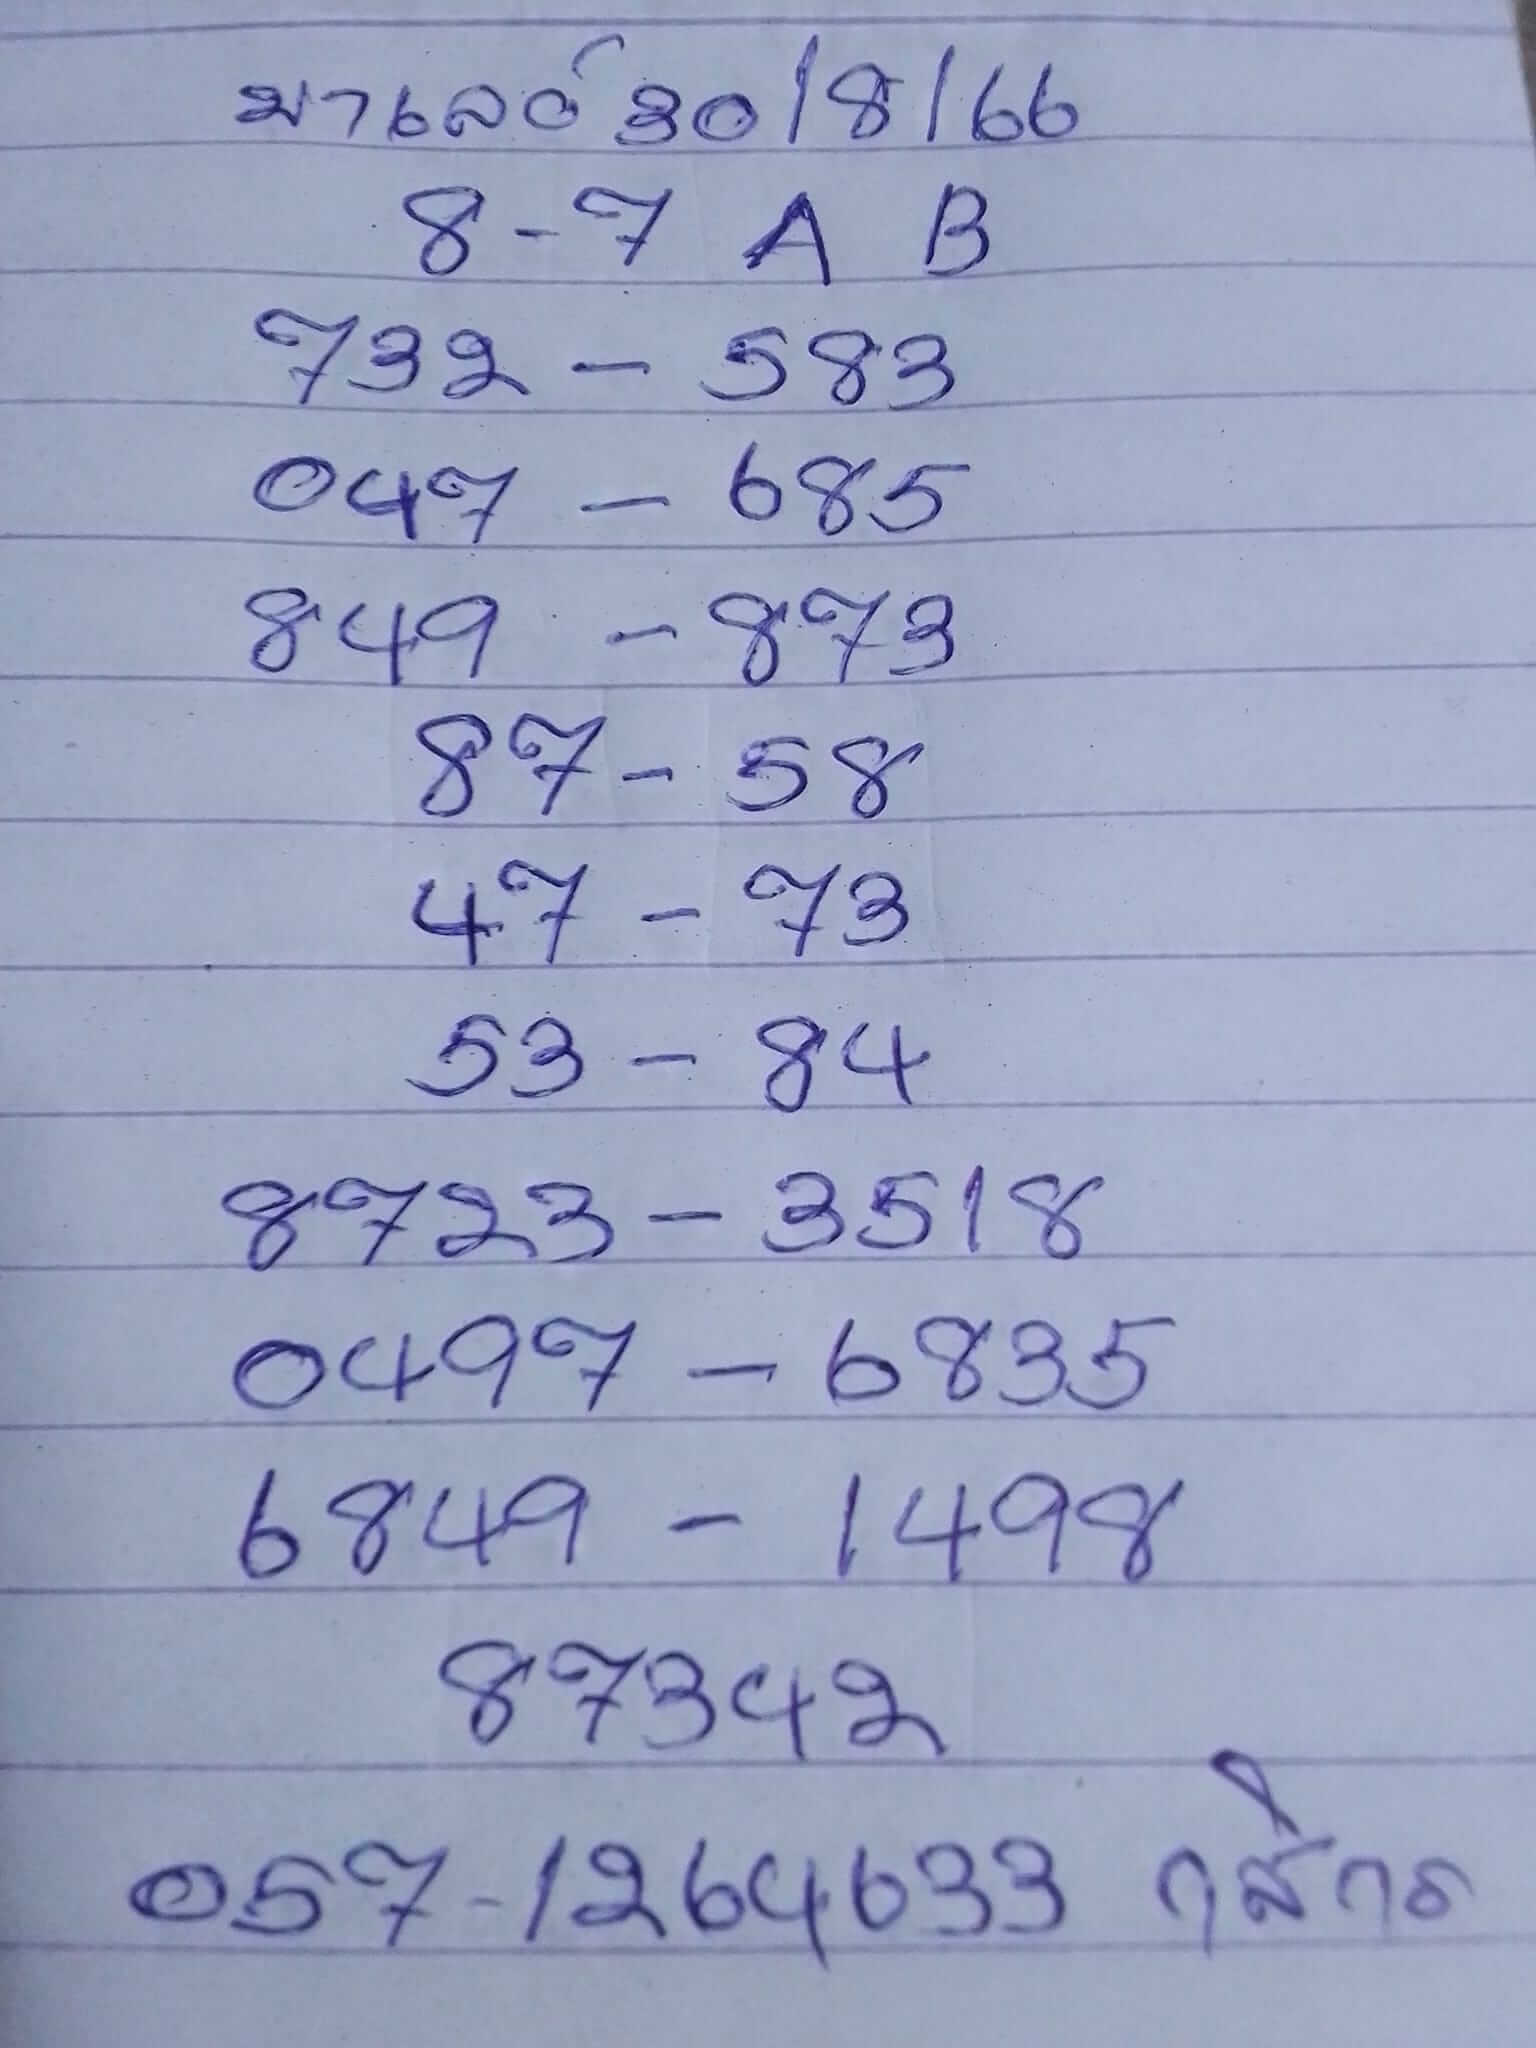 มาเลย์ 30/8/66
8-7 A B
732 - 583
047 - 685
849 - 873
87 - 58
47 - 73
53 - 84
8723 - 3518
0497 - 6835
6849 - 1498
87342
057-1264633 กสิกร